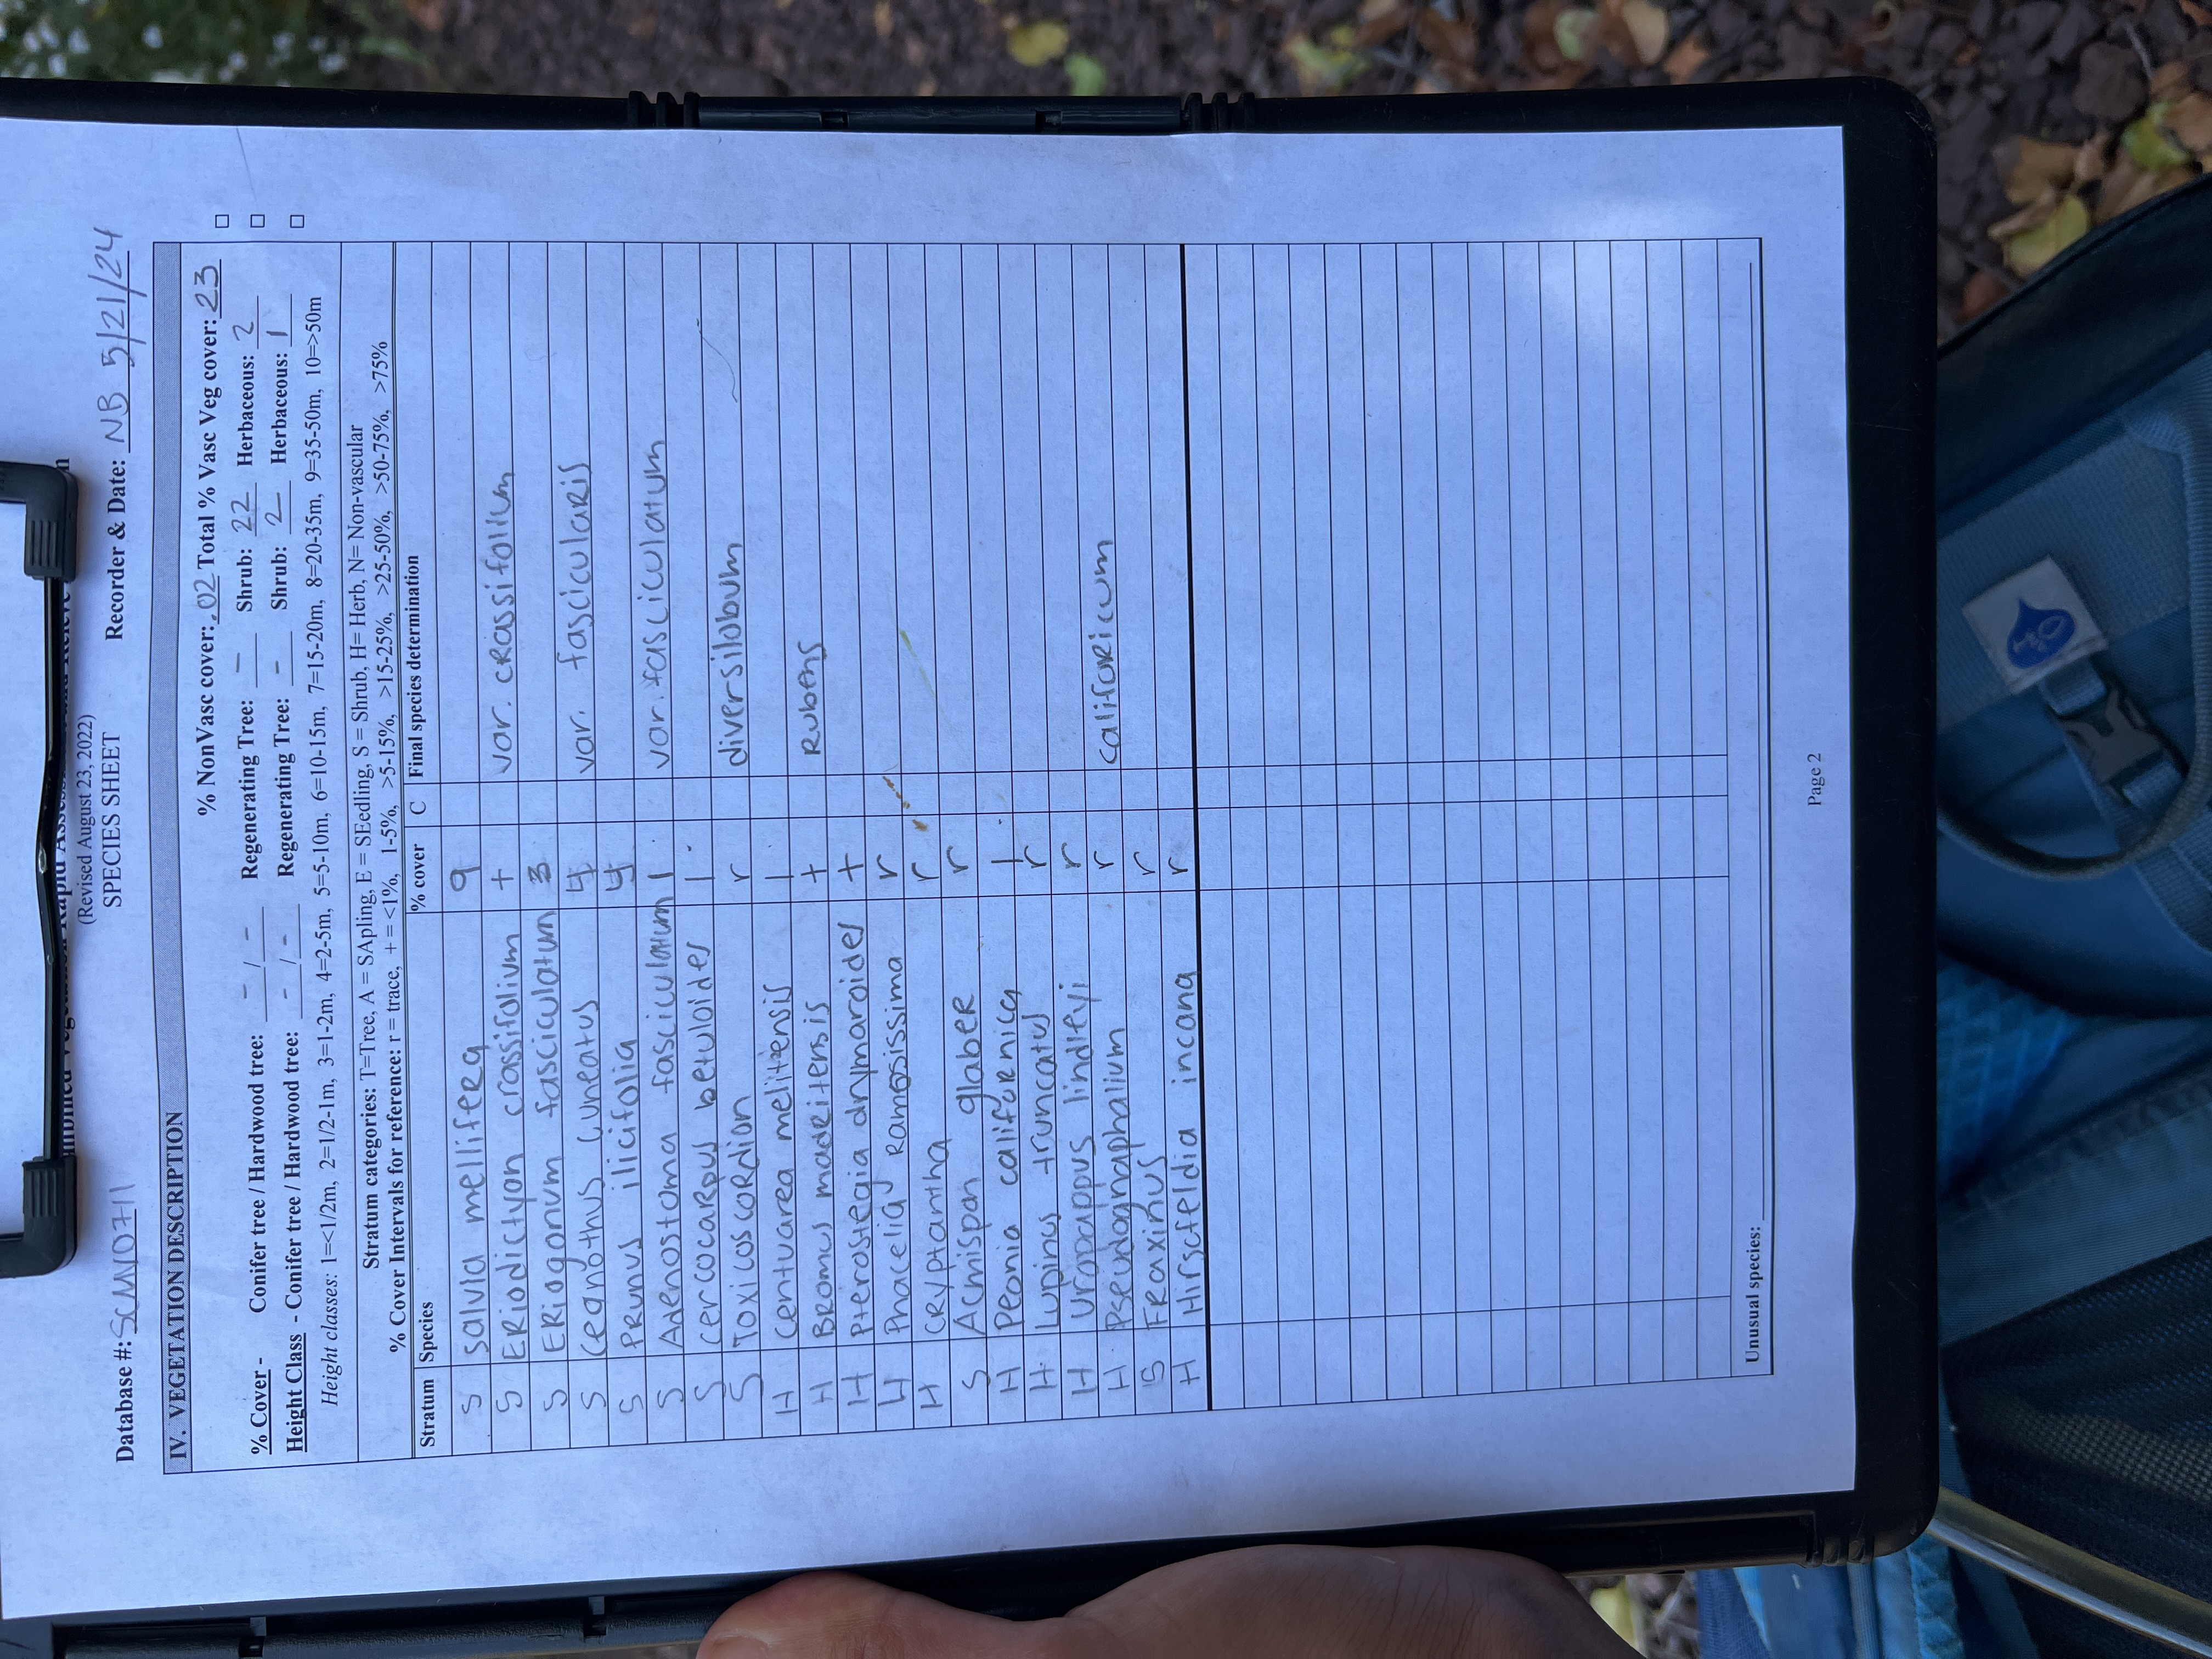 (Revised August 23, 2022)
SPECIES SHEET
Database #: SCM10711 Recorder & Date: NB 5/21/24
IV. VEGETATION DESCRIPTION
% NonVasc cover: .02 Total % Vasc Veg cover: 23 □
% Cover - Conifer tree / Hardwood tree: - / - Regenerating Tree: - Shrub: 22 Herbaceous: 2 □
Height Class - Conifer tree / Hardwood tree: - / - Regenerating Tree: - Shrub: 2 Herbaceous: 1 □
Height classes: 1=<1/2m, 2=1/2-1m, 3=1-2m, 4=2-5m, 5=5-10m, 6=10-15m, 7=15-20m, 8=20-35m, 9=35-50m, 10=>50m
Stratum categories: T=Tree, A = SApling, E = SEedling, S = Shrub, H= Herb, N= Non-vascular
% Cover Intervals for reference: r = trace, + = <1%, 1-5%, >5-15%, >15-25%, >25-50%, >50-75%, >75%
Stratum Species % cover C Final species determination
S Salvia mellifera 9
S Eriodictyon crassifolium + var. crassifolium
S Eriogonum fasciculatum 3
S Ceanothus cuneatus 4 var. fascicularis
S Prunus ilicifolia 4
S Adenostoma fasciculatum 1 var. fasciculatum
S Cercocarpus betuloides 1
S Toxicoscordion r diversilobum
H Centuarea melitensis 1
H Bromus madritensis + rubens
H Pterostegia drymaroides +
H Phacelia ramosissima r
H Cryptantha r
S Acmispan glaber r
H Peonia californica 1
H Lupinus truncatus r
H Uropappus lindleyi r
H Pseudognaphalium r californicum
S Fraxinus r
H Hirscfeldia incana r
Unusual species:
Page 2
H2O